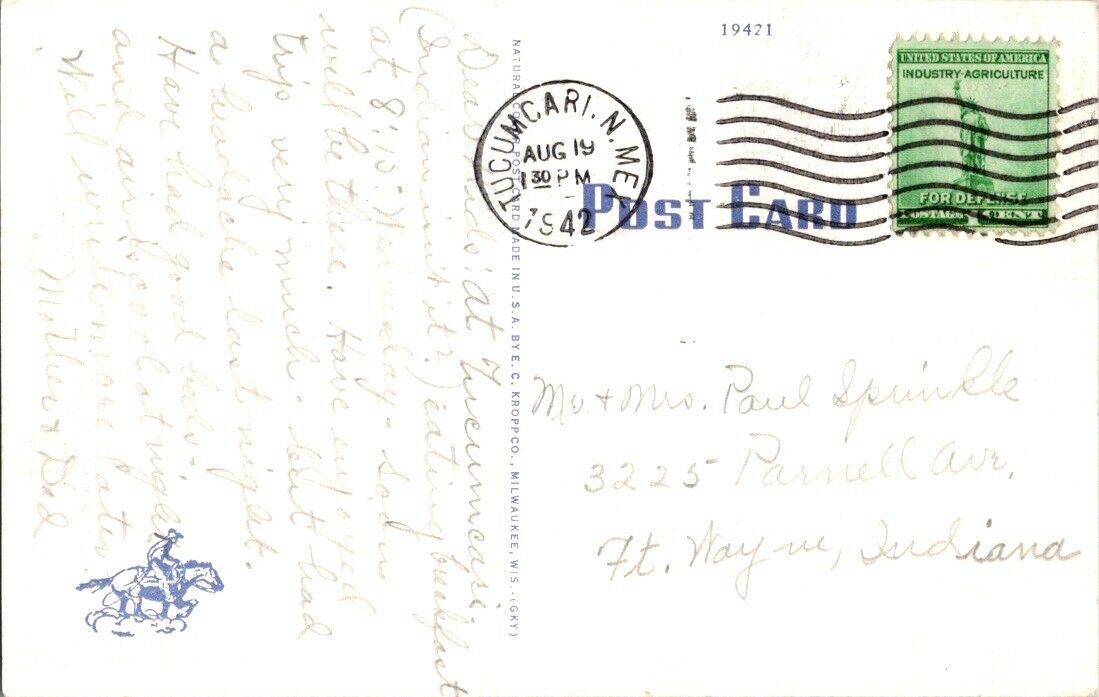 19421
UNITED STATES OF AMERICA
INDUSTRY·AGRICULTURE
FOR DEFENSE
POSTAGE 1 CENT
TUCUMCARI, N. MEX
AUG 19
1 30 PM
1942
POST CARD
NATURAL COLOR POST CARD MADE IN U. S. A. BY E. C. KROPP CO., MILWAUKEE, WIS. (GKY)
Dear Kids: at Tucumcari
(Indian isn't it?) eating breakfast
at 8:15: Wednesday - soon
will be there. Have enjoyed
trip very much. but had
a headache last night.
Have had good beds -
and air is cool at night.
Will write more later.
Mother & Dad
Mr & Mrs. Paul Sprinkle
3225 Parnell Ave.
Ft. Wayne, Indiana